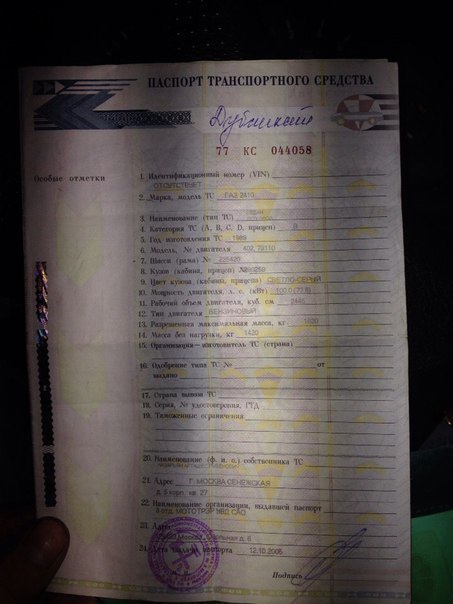 ПАСПОРТ ТРАНСПОРТНОГО СРЕДСТВА
Дубликат
77 КС 044058
Особые отметки
1. Идентификационный номер (VIN)
ОТСУТСТВУЕТ
2. Марка, модель ТС ГАЗ 2410
3. Наименование (тип ТС)
4. Категория ТС (А, В, С, D, прицеп) В
5. Год изготовления ТС 1989
6. Модель, № двигателя 402
7. Шасси (рама) №
8. Кузов (кабина, прицеп) №
9. Цвет кузова (кабины, прицепа) СВЕТЛО-СЕРЫЙ
10. Мощность двигателя, л. с. (кВт)
11. Рабочий объем двигателя, куб. см 2445
12. Тип двигателя БЕНЗИНОВЫЙ
13. Разрешенная максимальная масса, кг
14. Масса без нагрузки, кг 1420
15. Организация—изготовитель ТС (страна)
16. Одобрение типа ТС № от
выдано
17. Страна вывоза ТС
18. Серия, № удостоверения, ГТД
19. Таможенные ограничения
20. Наименование (ф. и. о.) собственника ТС
21. Адрес Г. МОСКВА СЕНЕЖСКАЯ
д. 5 корп. кв. 27
22. Наименование организации, выдавшей паспорт
5 отд. МОТОТРЭР УВД САО
23. Адрес
24. Дата выдачи паспорта 12.10.2006
Подпись